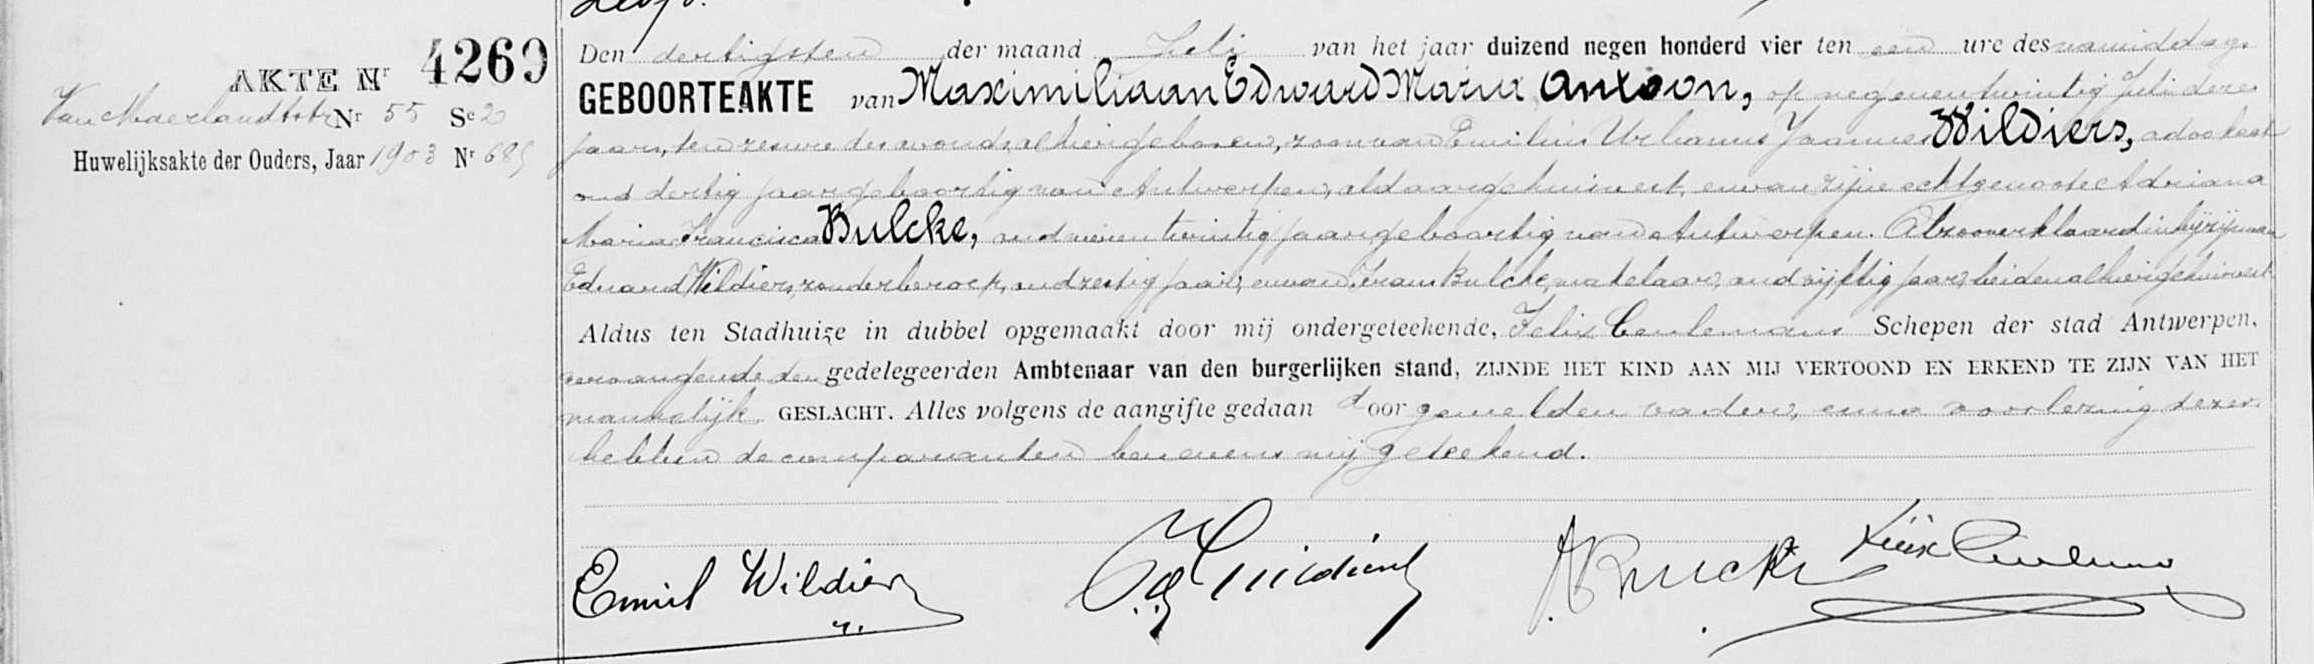 AKTE Nr 4269
Van Maerlandtstr Nr 55 Se 2
Huwelijksakte der Ouders, Jaar 1903 Nr 685
Den dertigsten der maand Juli van het jaar duizend negen honderd vier ten een ure des namiddag.
GEBOORTEAKTE van Maximiliaan Edward Maria Antoon, op negenentwintig Juli dezes
jaars, ten zes ure des avonds, alhier geboren, zoon van Emilius Urbanus Joannes Wildiers, advokaat
oud dertig jaar geboortig van Antwerpen, aldaar gehuisvest, en van zijne echtgenoote Adriana
Maria Francisca Bulcke, oud twintig jaar geboortig van Antwerpen. Alzoo verklaard in bijzijn van
Eduard Wildiers, zonder beroep, oud zestig jaar, en van Frans Bulcke, makelaar, oud vijftig jaar, beiden alhier gehuisvest.
Aldus ten Stadhuize in dubbel opgemaakt door mij ondergeteekende, Felix Ceulemans Schepen der stad Antwerpen,
vervangende den gedelegeerden Ambtenaar van den burgerlijken stand, ZIJNDE HET KIND AAN MIJ VERTOOND EN ERKEND TE ZIJN VAN HET
mannelijk GESLACHT. Alles volgens de aangifte gedaan door gemelden vader, en na voorlezing dezer
hebben de comparanten benevens mij geteekend.
Emiel Wildiers
Felix Ceulemans